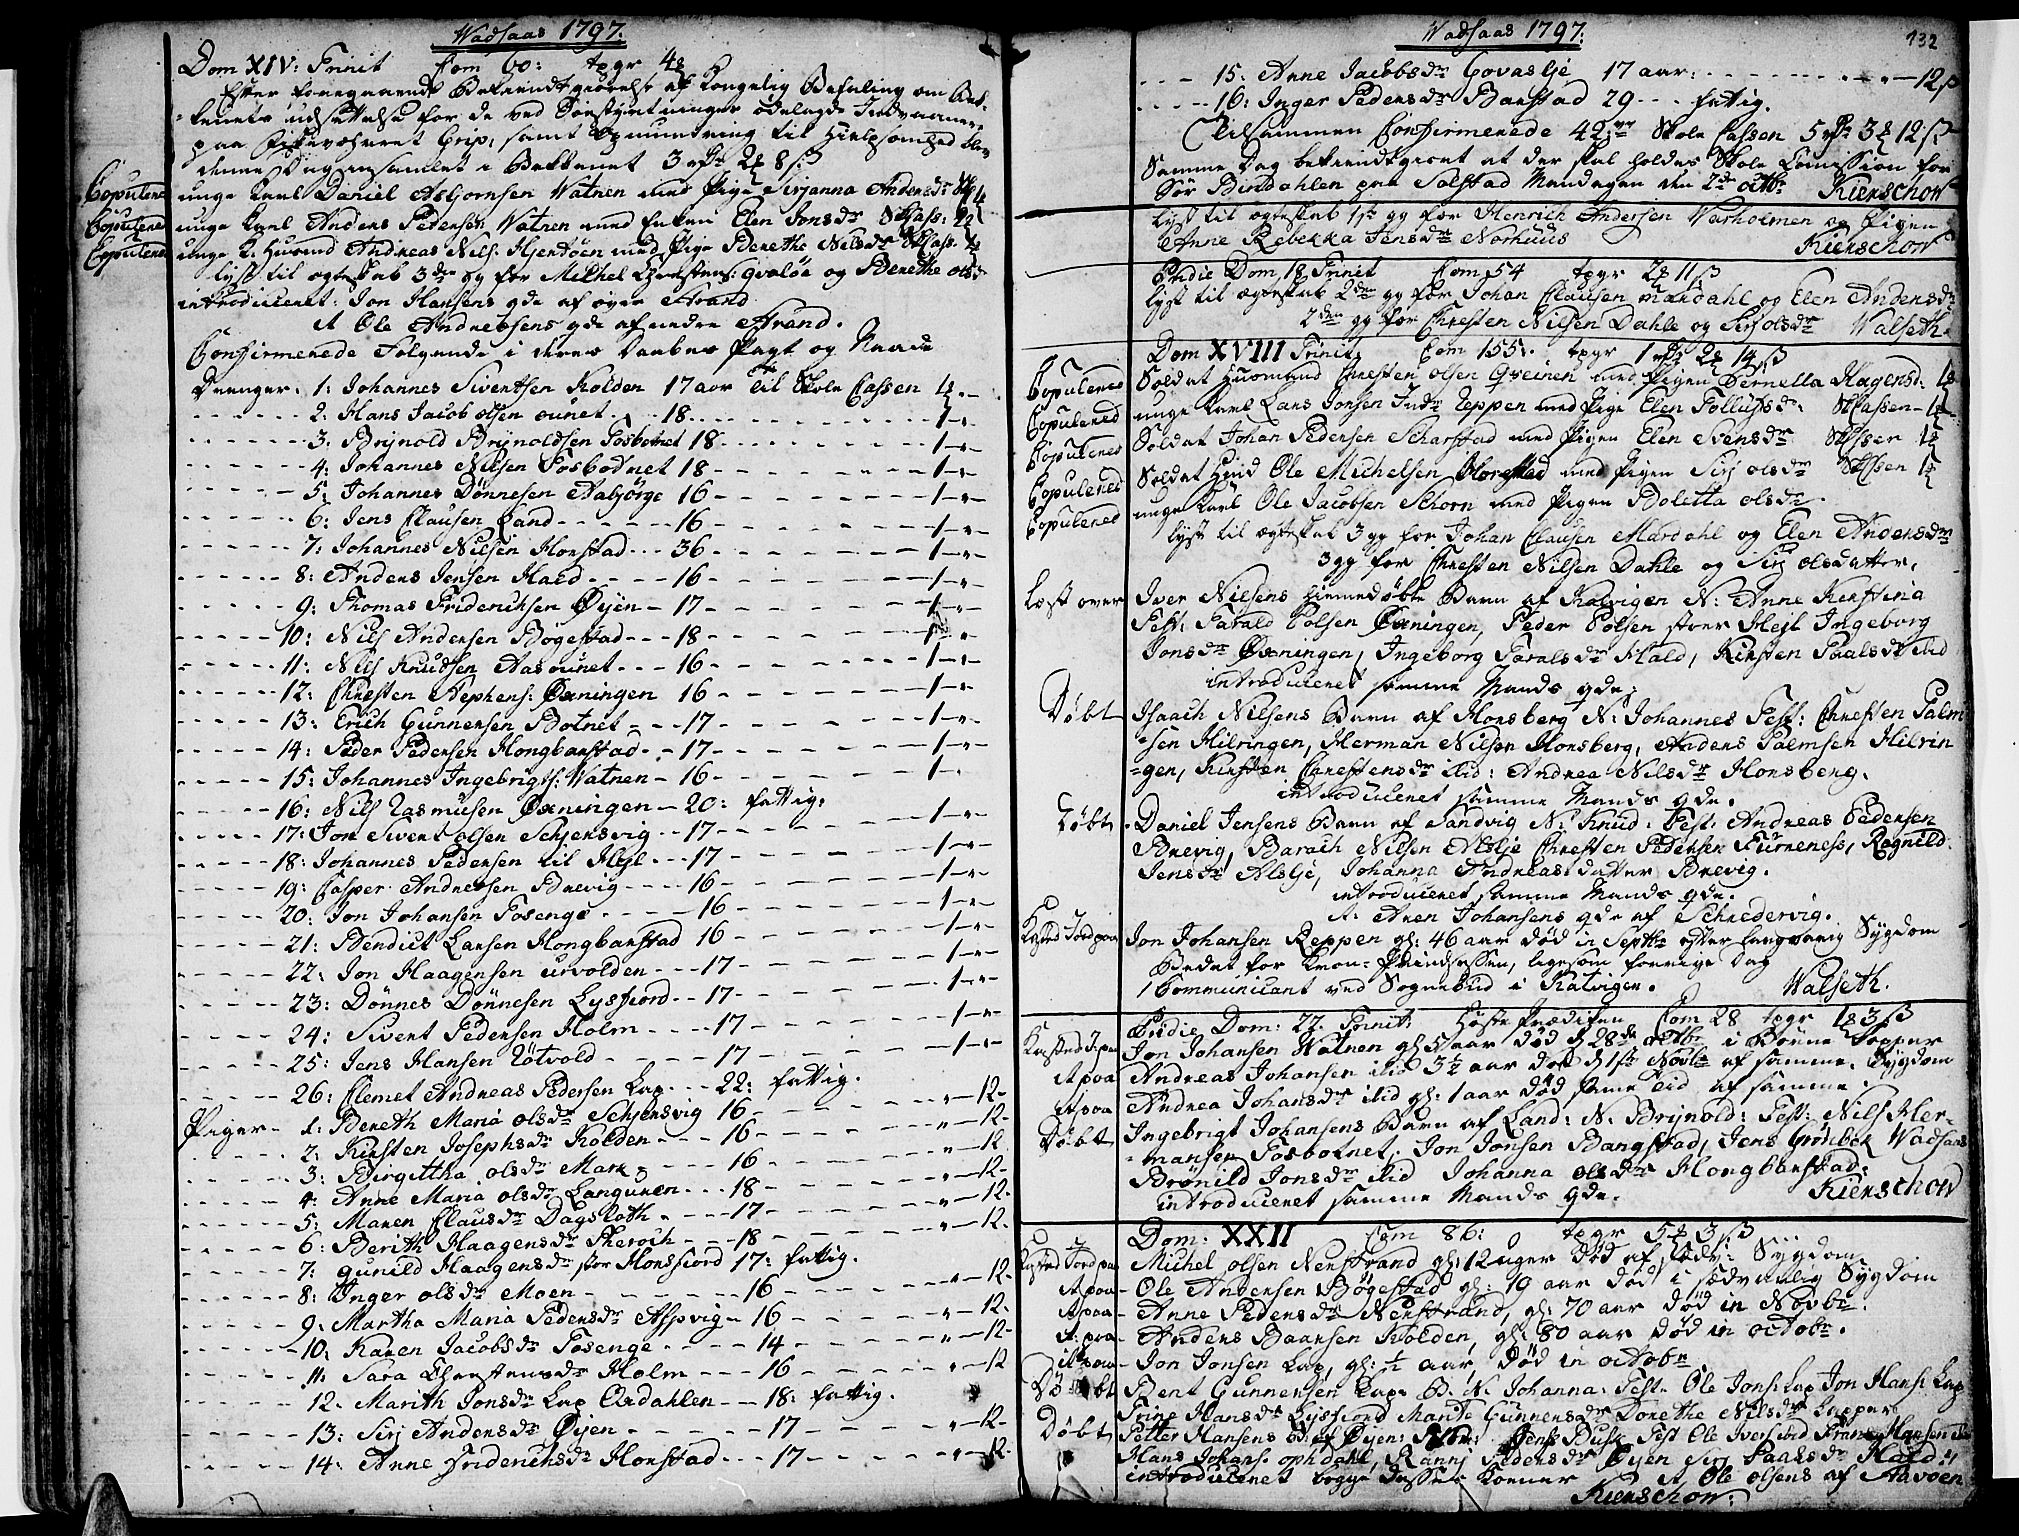 Wadsaas 1797.
Dom XIV: Trinit Com 60: tpgr 4
Efter foregaaende Bekiendtgiørelse af Kongelig Befaling om
udsættelse for de ved Indvaanere
paa Grip, samt Opmuntring til Hielpsomhed blev
denne Dag samlet i Bekkenet 3 rdr 2 8 ß
Copulered unge Karl Daniel Asbjørnsen Watnen med Pige Sirjanna Andersdr
Copulered unge Karl Anders Pedersen Watnen med Enken Elen Jonsdr
Copulered unge Andreas Nils. med Pige Berethe Nilsdr
lyst til egteskab 3die gg for Mithel Christens: qvaløe og Berethe ols:
introduceret: Jon Hansens qde af øvre Strand
It Ole Andreasens qde af nedre Strand.
Confirmerede Følgende i deres Daabes Pagt og Naade
Drenger: 1: Johannes Sivertsen Kolden 17 aar til Skole Cassen 1
2: Hans Jacob olsen 18 1
3: Brynold Brynoldsen Fosbotnet 18 1
4: Johannes Nilsen Fosbodnet 18 1
5: Johannes Dønnesen Aabjørge 16 1
6: Jens Clausen Land 16 1
7: Johannes Nilsen Horstad 36 1
8: Anders Jensen Hald 16 1
9: Thomas Friderichsen Øyen 17 1
10: Nils Andersen Bøgestad 18 1
11: Nils Knudsen Aasounet 16 1
12: Christen Stephens: Øxningen 16 1
13: Erich Gunnersen Botnet 17 1
14: Peder Pedersen Hongbarstad 17 1
15: Johannes Ingebrigts: Watnen 16 1
16: Nils Rasmusen Øxningen 20: fattig.
17: Jon Sivert olsen Schjersvig 17 1
18: Johannes Pedersen lil Hejl 17 1
19: Casper Andersen Brevig 16 1
20: Jon Johansen Tosenge 16 1
21: Bendict Larsen Hongbarstad 16 1
22: Jon Haagensen urvolden 17 1
23: Dønnes Dønnesen Lysfiord 17 1
24: Sivert Pedersen Holm 17 1
25: Jens Hansen Røtvold 17 1
26: Clemet Andreas Pedersen Lap 22: fattig.
Piger 1: Bereth Maria olsdr Schjersvig 16 12
2: Kirsten Josephsdr Kolden 16 12
3: Birgittha olsdr Mark 16 12
4: Anne Maria olsdr Langunen 18 12
5: Maren Clausdr Dagsloth 17 12
6: Berith Haagensdr Theroch 18 12
7: gunild Haagensdr stor Horsfiord 17: fattig.
8: Inger olsdr Moen 16 12
9: Martha Maria Pedersdr Aspvig 16 12
10: Karen Jacobsdr Tosenge 14 12
11: Sara Christensdr Holm 16 12
12. Marith Jonsdr Lap Ordahlen 18: fattig.
13: Sirj Andersdr Øyen 17 12
14: Anne Friderichsdr Horstad 17 12
Wadsaas 1797.
132
15: Anne Jacobsdr Govaslje 17 aar: 12 ß
16: Inger Pedersdr Barstad 29 fattig.
Tilsammen Confirmerede 42 Skole Cassen 5 rdr 3 12 ß
Samme Dag bekiendtgiort at der skal holdes Skole Comission for
Sør Bindahlen paa Solstad Mandagen den 2de octbr Kierschow
lyst til egteskab 1ste gg for Henrich Andersen Varholmen og Pigen
Anne Rebekka Jensdr Norhuus Kierschow
Pridie Dom, 18 Trinit Com 54 tpgr 2 11 ß
lyst til egteskab 2den gg for Johan Clausen mardahl og Elen Andersdr
2den gg for Christen Nilsen Dahle og Sirj olsdr Walseth.
Dom XVIII Trinit, Com 155: tpgr 1 rdr 2 14 ß
Copulered Soldat Huosmand Christen olsen Gveinen med Pigen Pernella Hagensd.
Copulered unge Karl Lars Jonsen Reppen med Pige Elen Pollusdr
Copulered Soldat Johan Pedersen Scharstad med Pigen Elen Svensdr
Copulered Soldat Ole Michelsen Horestad med Pigen Sirj olsdr
Copulered unge Karl Ole Jacobsen Schorn med Pigen Boletta olsdr
lyst til egteskab 3 gg for Johan Clausen Mardahl og Elen Andersdr
3 gg for Christen Nilsen Dahle og Sirj olsdatter.
Læst over Iver Nilsens hiemedøbte Barn af Kalvigen N: Anne Kerstina
Test: Tarald Polsen Øxningen, Peder Polsen stoer Hejl Ingeborg
Jonsdr Øxningen, Ingeborg Taralsdr Hald, Kirsten Paalsdr ibid
introduceret samme Mands qde.
Døbt Isaach Nilsens Barn af Horsberg N: Johannes Test: Christen Palm
sen Hilringen, Herman Nilsen Horsberg, Anders Palmsen Hilrin
gen, Kirsten Christensdr ibid: Andrea Nilsdr Horsberg.
introduceret samme Mands qde.
Døbt Daniel Jensens Barn af Sandvig N: Knud: Test: Andreas Pedersen
Brevig, Barach Nilsen Alslje Christen Pedersen Furneness, Ragnild
Jensdr Alslje, Johanna Andreasdatter Brevig.
introduceret samme Mands qde.
It: Aren Johansens qde af Schredervig.
Kasted Jord paa Jon Johansen Reppen gl: 46 aar død in Septbr efter langvarig Sygdom
Bedet for Kron-Prindsessen, ligesom forrige dag
1 Communicant ved Sognebud i Kalvigen. Walseth.
Pridie Dom: 22. Trinit: Høste Prædiken Com 28 tpgr 1 3 ß
Kasted J: paa Jon Johansen Watnen gl: 5 aar død d 28de octbr i Børne Kopper
It paa Andreas Johansen ibid 3 1/2 aar død d 1ste Novbr af samme Sygdom
It paa Andrea Johansdr ibid gl: 1 aar død same tid af samme
Døbt Ingebrigt Johansens Barn af Land: N: Brynold: Test: Nils Her-
mansen Fosbotnet, Jon Jonsen Bangstad, Jens Grønbek Wadsaas
Brønild Jonsdr ibid Johanna olsdr Hongbarstad.
introduceret samme Mands qde. Kierschow
Dom: XXII Com 86: tpgr 5 3 ß
Kasted Jord paa Michel olsen Nerstrand gl: 12 uger død af sædv: Sygdom
It paa Ole Andersen Bøgestad gl: 19 aar død i sædvanlig Sygdom
It paa Anne Pedersdr Nerstrand, gl: 70 aar død in Novbr.
It paa Anders Baarsen Kolden, gl: 80 aar død in octobr.
It paa Jon Jonsen Lap, gl: 1/2 aar, død in octobr
Døbt Bent Gunnersen Lap B. N. Johanna: Test. Ole Jons: Lap Jon Hans: Lap
Trine Hansdr Lysfiord Marite Gunnersdr Dorethe Nilsdr Lapper
Døbt Petter Hansens B: af Øyen: N: Jens Busk Test Ole Iversen ibid Frans Hansen
Hans Johans: ophdahl, Ranj Pedersdr Øyen Sirj Paalsdr Hald
introduceret begge disse Koner It Ole olsens af Aavoen
Kierschow.